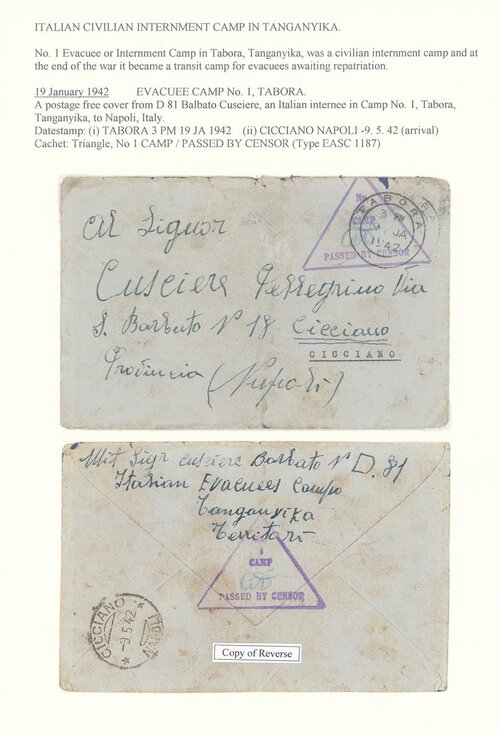 ITALIAN CIVILIAN INTERNMENT CAMP IN TANGANYIKA.
No. 1 Evacuee or Internment Camp in Tabora, Tanganyika, was a civilian internment camp and at
the end of the war it became a transit camp for evacuees awaiting repatriation.
19 January 1942 EVACUEE CAMP No. 1, TABORA.
A postage free cover from D 81 Balbato Cuseiere, an Italian internee in Camp No. 1, Tabora,
Tanganyika, to Napoli, Italy.
Datestamp: (i) TABORA 3 PM 19 JA 1942 (ii) CICCIANO NAPOLI -9. 5. 42 (arrival)
Cachet: Triangle, No 1 CAMP / PASSED BY CENSOR (Type EASC 1187)
No
CAMP
PASSED BY CENSOR
TABORA
3 PM
19 JA
1942
Al Signor
Cusciere Pellegrino Via
S. Barbato N 18 Cicciano
CICCIANO
Provincia (Napoli)
Mit Sigr Cusciere Barbato N D. 81
Italian Evacuees Campo
Tanganyika
Territari
1
CAMP
PASSED BY CENSOR
CICCIANO
-9.5.42
NAPOLI
Copy of Reverse